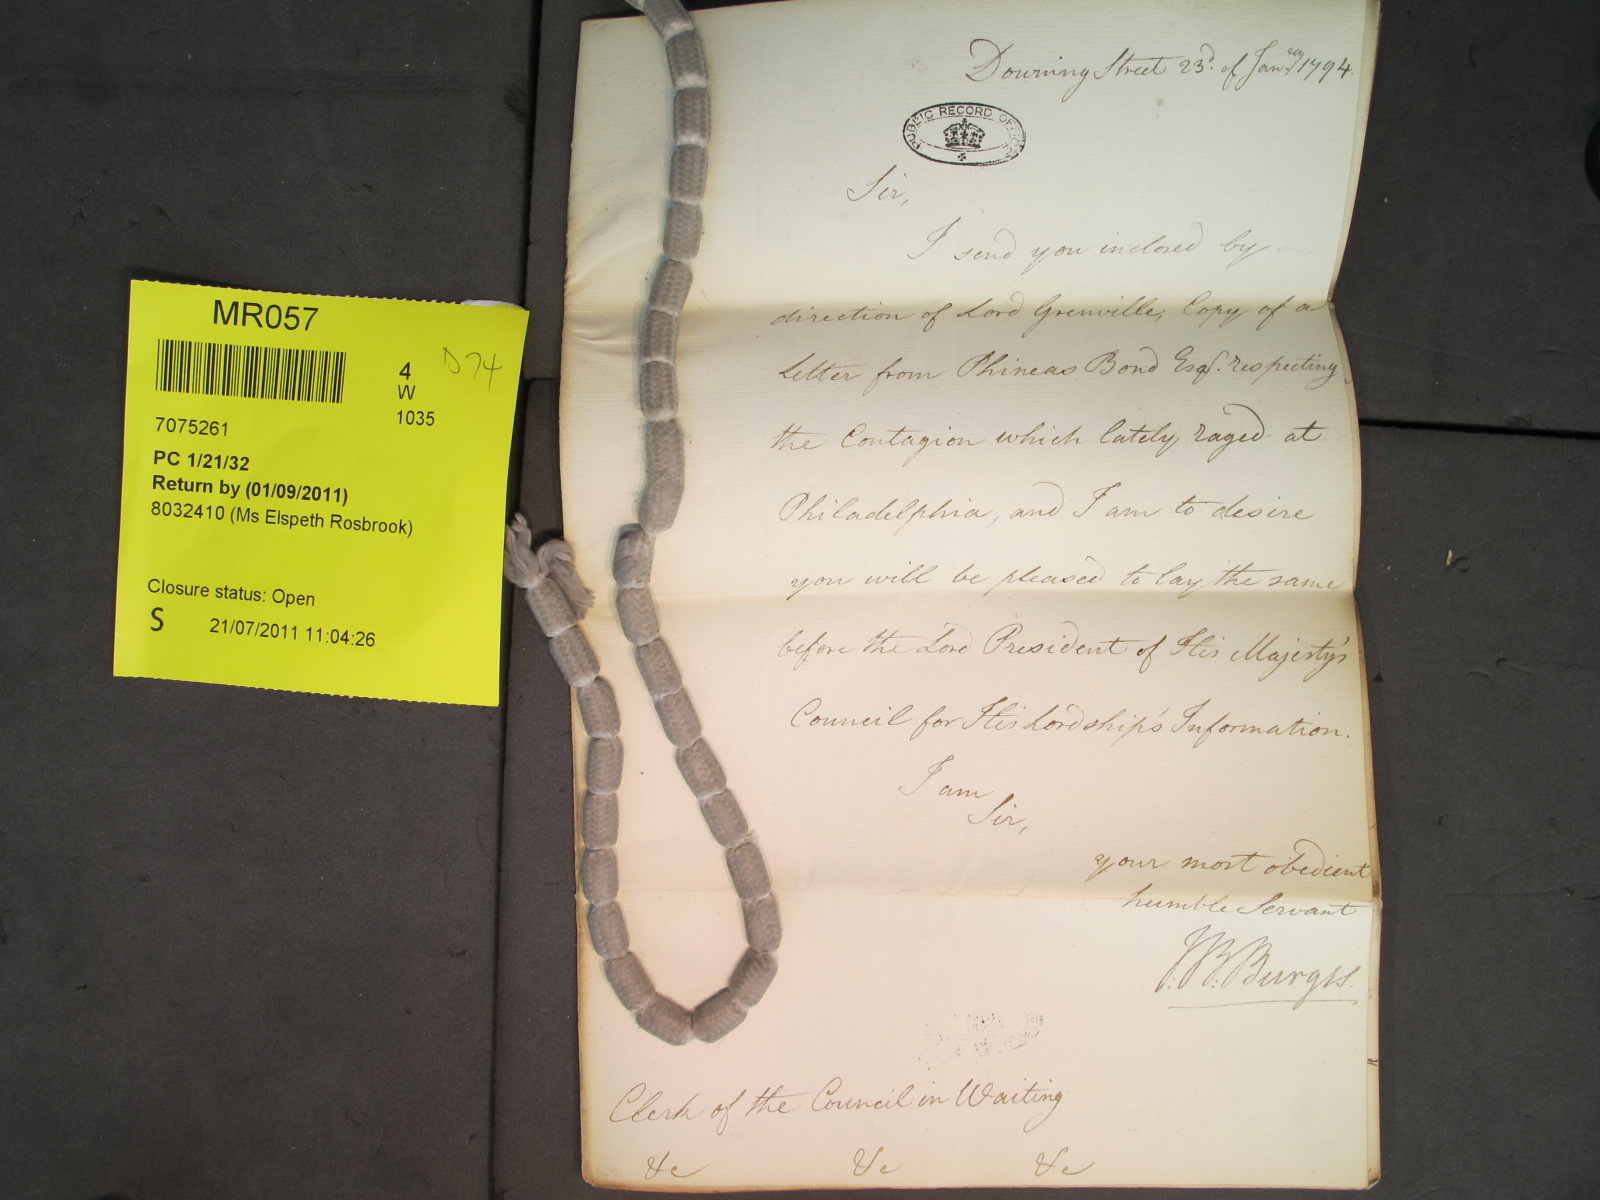 MR057
4
W
1035
D74
7075261
PC 1/21/32
Return by (01/09/2011)
8032410 (Ms Elspeth Rosbrook)
Closure status: Open
S 21/07/2011 11:04:26
Downing Street 23d. of Janry 1794.
PUBLIC RECORD OFFICE
Sir,
I send you inclosed by
direction of Lord Grenville, Copy of a
Letter from Phineas Bond Esqr. respecting
the Contagion which lately raged at
Philadelphia, and I am to desire
you will be pleased to lay the same
before the Lord President of His Majesty's
Council for His Lordship's Information.
I am
Sir,
your most obedient
humble Servant
J. B. Burges.
Clerk of the Council in Waiting
&c &c &c